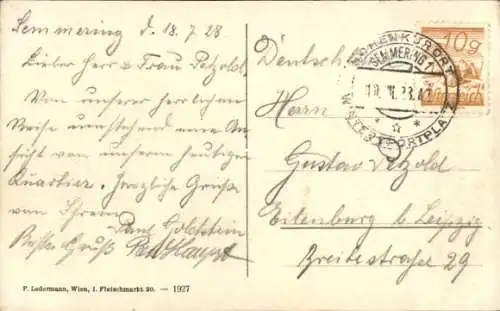 Semmering d. 18.7.28
Lieber Herr u. Frau Petzold.
Von unserer herrlichen
Reise umstehend eine An
sicht von unserem heutigen
Quartier. Herzliche Grüße
von Ihrem Paul Goldstein
Beste Grüße
Deutschland
Herrn
Gustav Petzold
Eilenburg b Leipzig
Breitestraße 29
HÖHENKURORT
SEMMERING 1
WINTERSPORTPLATZ
10g
F. Ledermann, Wien, I. Fleischmarkt 20. — 1927